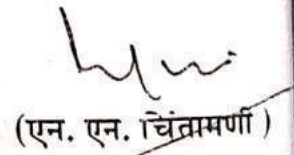 (एन. एन. चिंतामणी)